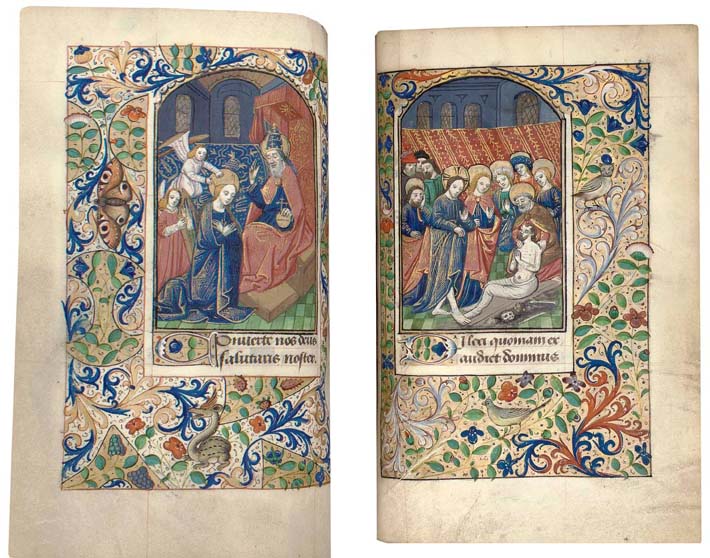 Conuerte nos deus
salutaris noster.
Dilexi quoniam ex
audiet dominus